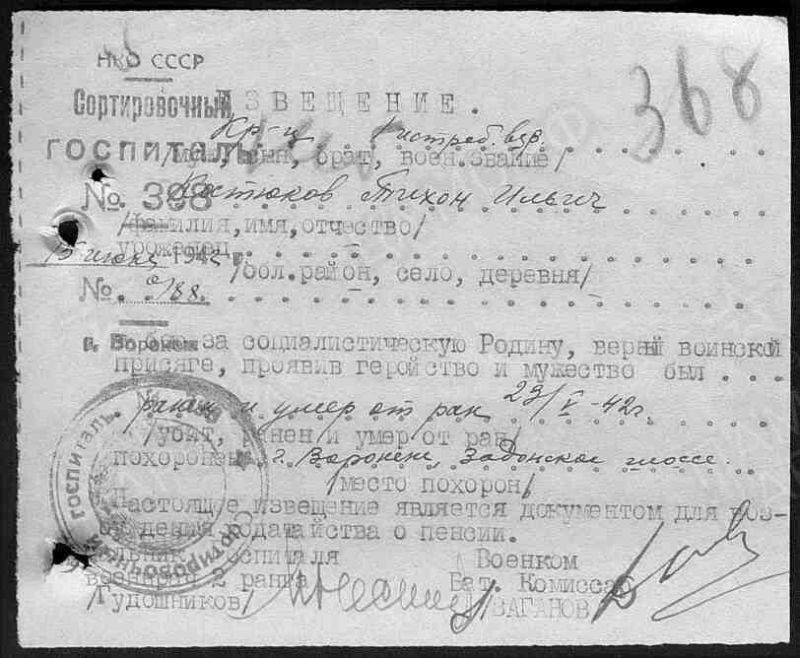 НКО СССР
Сортировочный
ГОСПИТАЛЬ
№ 398
15 июня 1942 г.
№ с/88.
г. Воронеж
368
ИЗВЕЩЕНИЕ.
Кр-ц Истреб. взв.
/муж, сын, брат, воен.звание/
Костюков Тихон Ильич
/фамилия, имя, отчество/
уроженец —
/обл.район, село, деревня/
за социалистическую Родину, верный воинской
присяге, проявив геройство и мужество был . . .
ранен и умер от ран 23/V-42г.
/убит, ранен и умер от ран/
похоронен г. Воронеж, Задонское шоссе.
/место похорон/
Настоящее извещение является документом для воз-
буждения ходатайства о пенсии.
Начальник госпиталя Военком
военврач 2 ранга Бат. Комиссар
/Гудошников/ /ВАГАНОВ/
госпиталь
Сортировочный